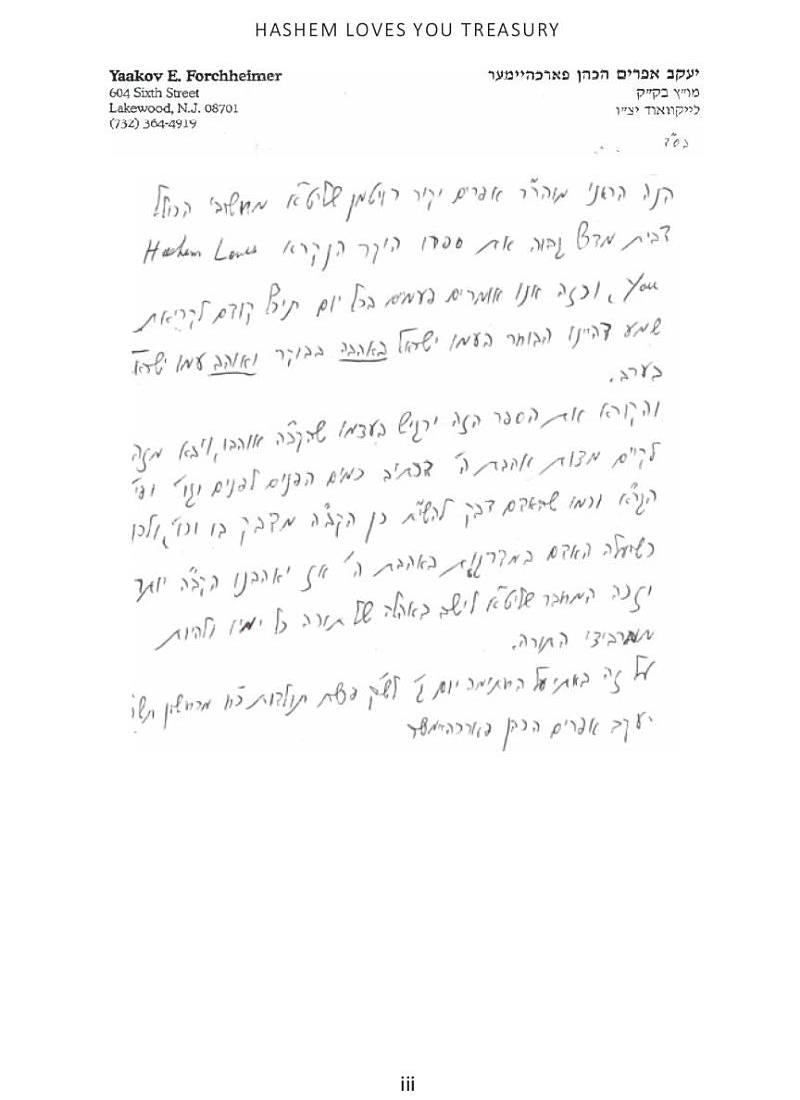 HASHEM LOVES YOU TREASURY
Yaakov E. Forchheimer
604 Sixth Street
Lakewood, N.J. 08701
(732) 364-4919
יעקב אפרים הכהן פארכהיימער
מו"ץ בק"ק
לייקוואוד יצ"ו
בס"ד
הנה הראני מוהר"ר אפרים יקיר רויטמן שליט"א מחשובי הכולל
דבית מדרש גבוה את ספרו היקר הנקרא Hashem Loves
You, וכזה אנו אומרים פעמים בכל יום תיכף קודם לקריאת
שמע דהיינו הבוחר בעמו ישראל באהבה בבוקר ואוהב עמו ישראל
בערב.
והקורא את הספר הזה ירגיש בעצמו שהקב"ה אוהבו, ויבא מזה
לקיים מצות אהבת ה' דכתיב כמים הפנים לפנים וגו' ופי'
הגר"א וכמו שהאדם דבק להשי"ת כן הקב"ה מדבק בו וכו', ולכן
כשיעלה האדם במדרגות באהבת ה' אז יאהבנו הקב"ה יותר
ויזכה המחבר שליט"א לישב באהלה של תורה כל ימיו ולהיות
ממרביצי התורה.
על זה באתי על החתימה יום ג' לש"ק פרשת תולדות כ"ח מרחשון
יעקב אפרים הכהן פארכהיימער
iii